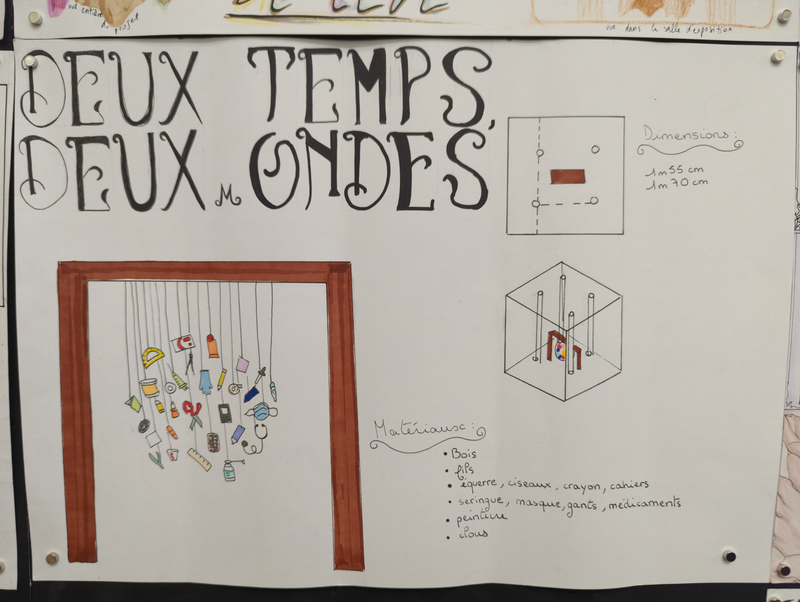 vue dans la salle d'exposition
DEUX TEMPS,
DEUX M ONDES
Dimensions :
1m 55 cm
1m 70 cm
Matériaux :
• Bois
• fils
• équerre, ciseaux, crayon, cahiers
• seringue, masque, gants, médicaments
• peinture
• clous